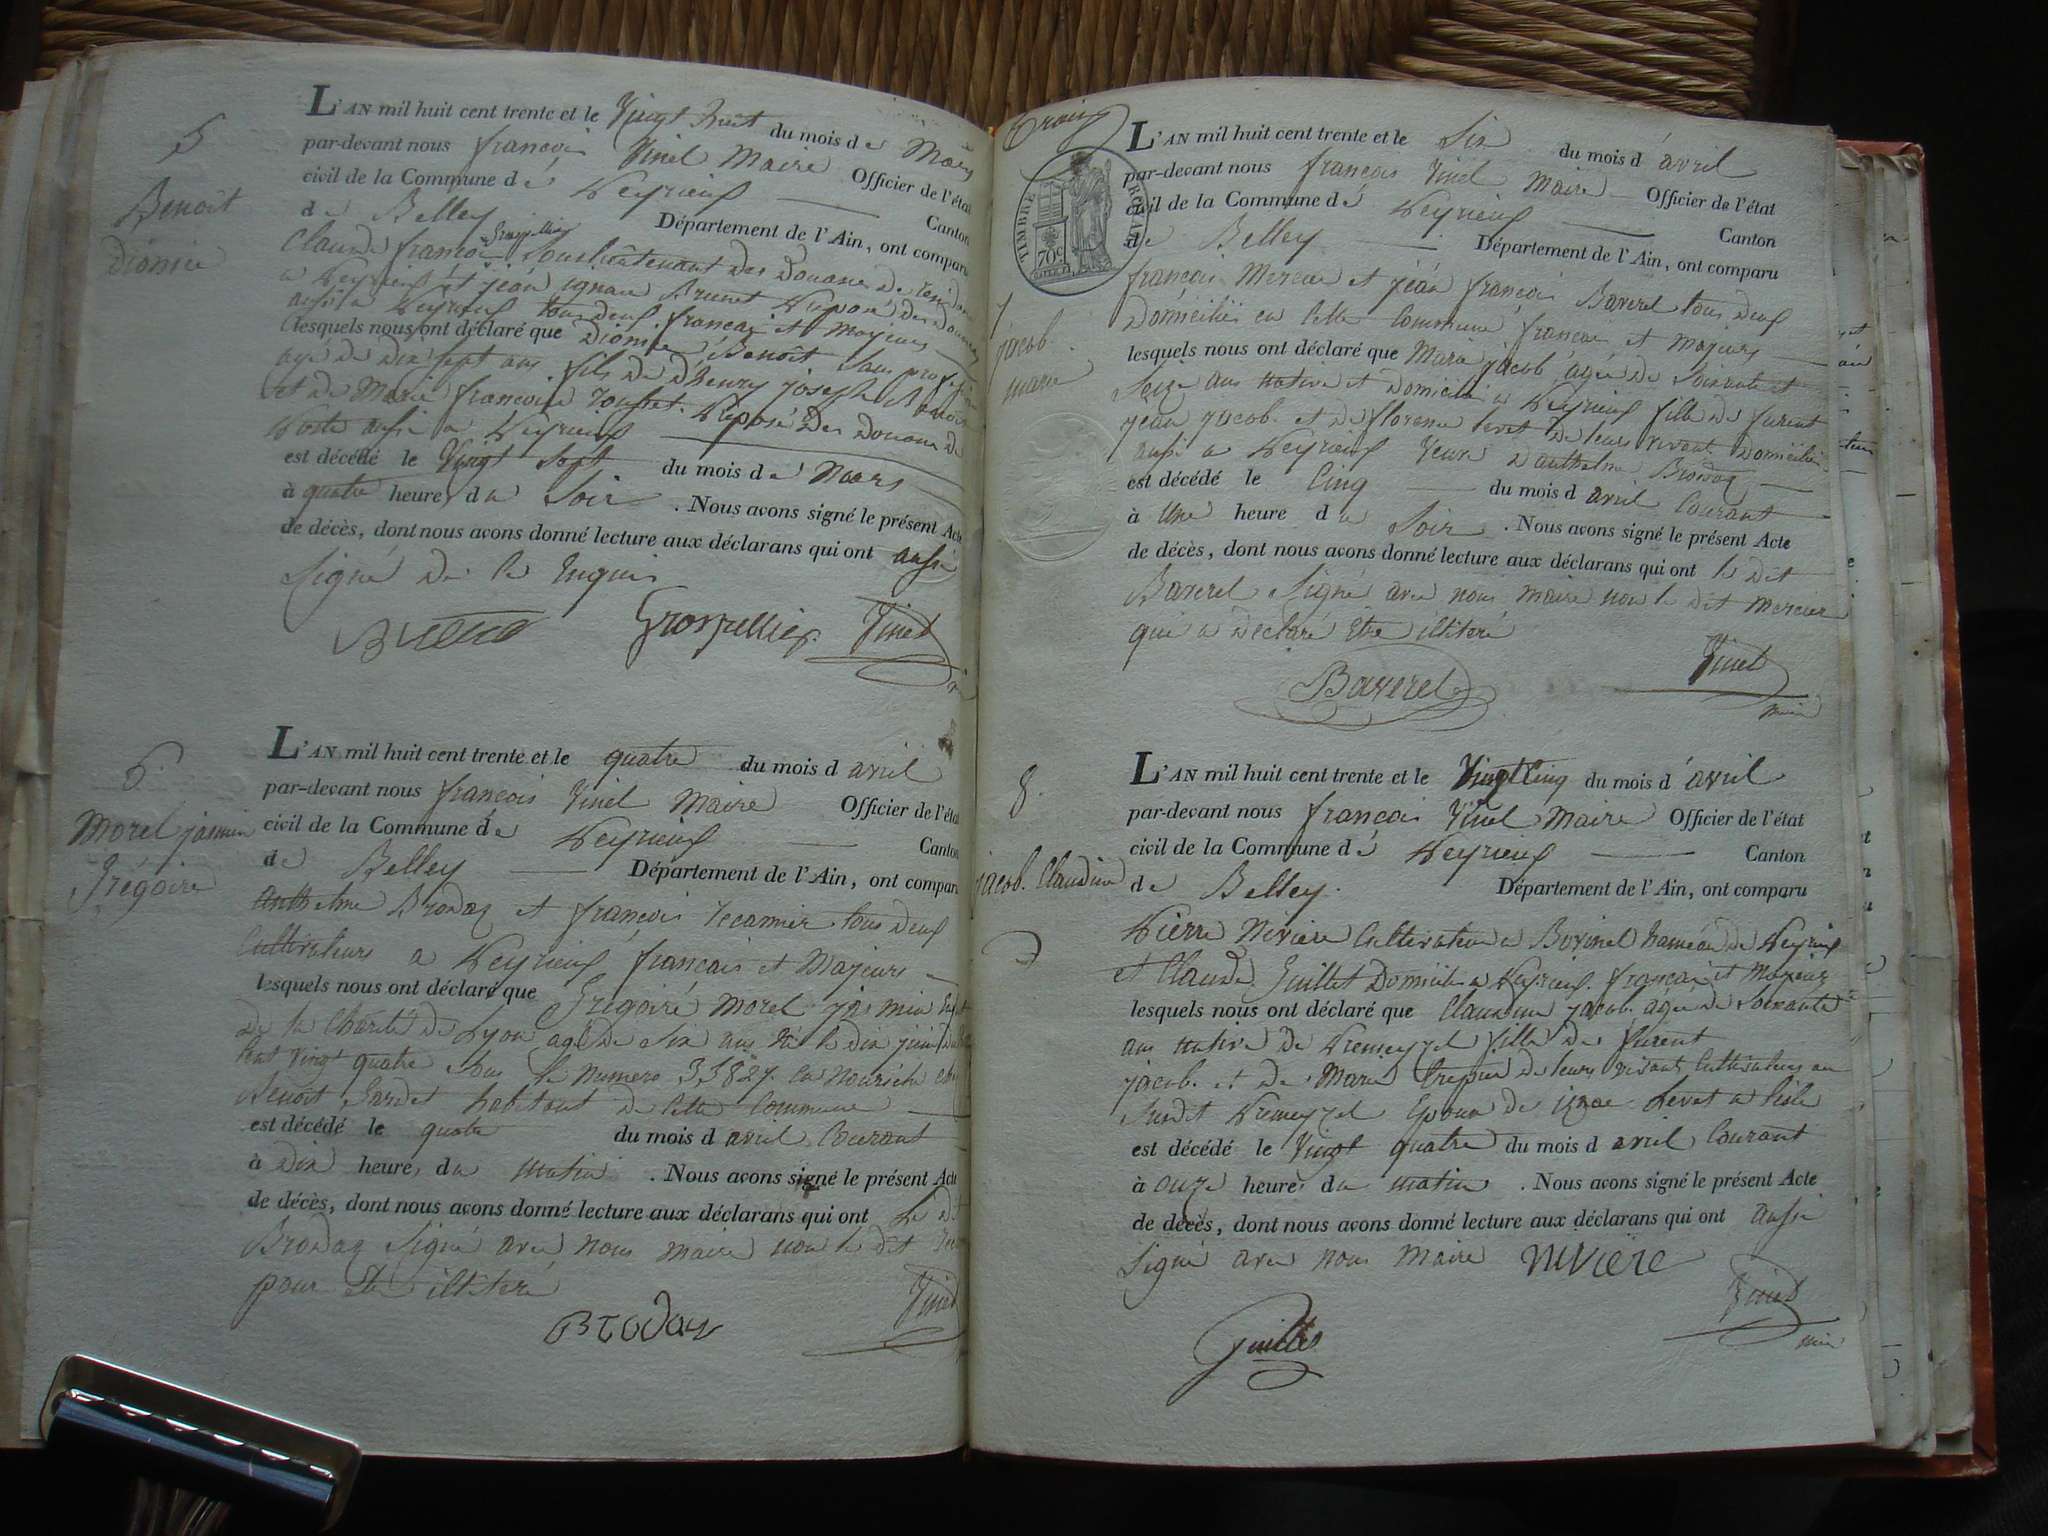 5
Benoît
Dionise
L'AN mil huit cent trente et le Vingt huit du mois de Mars
par-devant nous françois Vinel Maire Officier de l'état
civil de la Commune de Peyrieux Canton
de Belley Département de l'Ain, ont comparu
Claude françois Grospellier Souslieutenant des Douanes de
a Peyrieux et jean ignace Brunet Préposé des Douanes
aussi a Peyrieux tous deux francais et Majeurs
lesquels nous ont déclaré que Dionise Benoît Sans profession
agé de Dix sept ans fils de d'henry joseph Benoît
et de Marie francoise Préposé des Douane de
Poste aussi a Peyrieux
est décédé le Vingt Sept du mois de Mars
à quatre heures du Soir . Nous avons signé le présent Acte
de décès, dont nous avons donné lecture aux déclarans qui ont aussi
Signé De ce Enquis
Brunet Grospellier Vinel
6
Morel jasmin
Grégoire
L'AN mil huit cent trente et le quatre du mois d avril
par-devant nous françois Vinel Maire Officier de l'état
civil de la Commune de Peyrieux Canton
de Belley Département de l'Ain, ont comparu
Anthelme Brodaz et françois Recamier tous deux
Cultivateurs a Peyrieux francais et Majeurs
lesquels nous ont déclaré que Grégoire Morel jasmin
De la Charité de Lyon agé De Six ans né le dix juin
cent vingt quatre sous le numero 33827 en nourrice chez
Benoit habitant de cette Commune
est décédé le quatre du mois d avril Courant
à Dix heures du matin . Nous avons signé le présent Acte
de décès, dont nous avons donné lecture aux déclarans qui ont le dit
Brodaz Signé avec nous maire non le dit
pour être illiteré
Brodaz Vinel
TIMBRE ROYAL
70c
7
jacob
marie
L'AN mil huit cent trente et le Six du mois d'avril
par-devant nous françois Vinel Maire Officier de l'état
civil de la Commune de Peyrieux Canton
de Belley Département de l'Ain, ont comparu
françois Mercier et jean françois Baverel tous deux
Domiciliés en cette Commune francais et majeurs
lesquels nous ont déclaré que Marie jacob agée de Soixante et
Seize ans native et domiciliée a Peyrieux fille de furent
jean jacob et de florence levet de leurs vivant Domiciliés
aussi a Peyrieux Veuve D'anthelme Brodaz
est décédé le Cinq du mois d avril Courant
à Une heure du Soir . Nous avons signé le présent Acte
de décès, dont nous avons donné lecture aux déclarans qui ont le dit
Baverel Signé avec nous maire non le dit mercier
qui a Déclaré Etre illiteré
Baverel Vinel
maire
8
jacob Claudine
L'AN mil huit cent trente et le Vingt Cinq du mois d'avril
par-devant nous françois Vinel Maire Officier de l'état
civil de la Commune de Peyrieux Canton
de Belley. Département de l'Ain, ont comparu
Pierre Nivière Cultivateur a Bovinel hameau de Peyrieux
et Claude Guillet Domicilié a Peyrieux francais et Majeurs
lesquels nous ont déclaré que Claudine jacob agée de Soixante
ans native de Premeyzel fille de furent
jacob et de Marie de leurs vivant Cultivateurs au
Surdit Premeyzel Epoux de Levet a
est décédé le Vingt quatre du mois d avril Courant
à onze heures du matin . Nous avons signé le présent Acte
de décès, dont nous avons donné lecture aux déclarans qui ont aussi
Signé avec nous Maire Nivière
Vinel
maire
Guillet